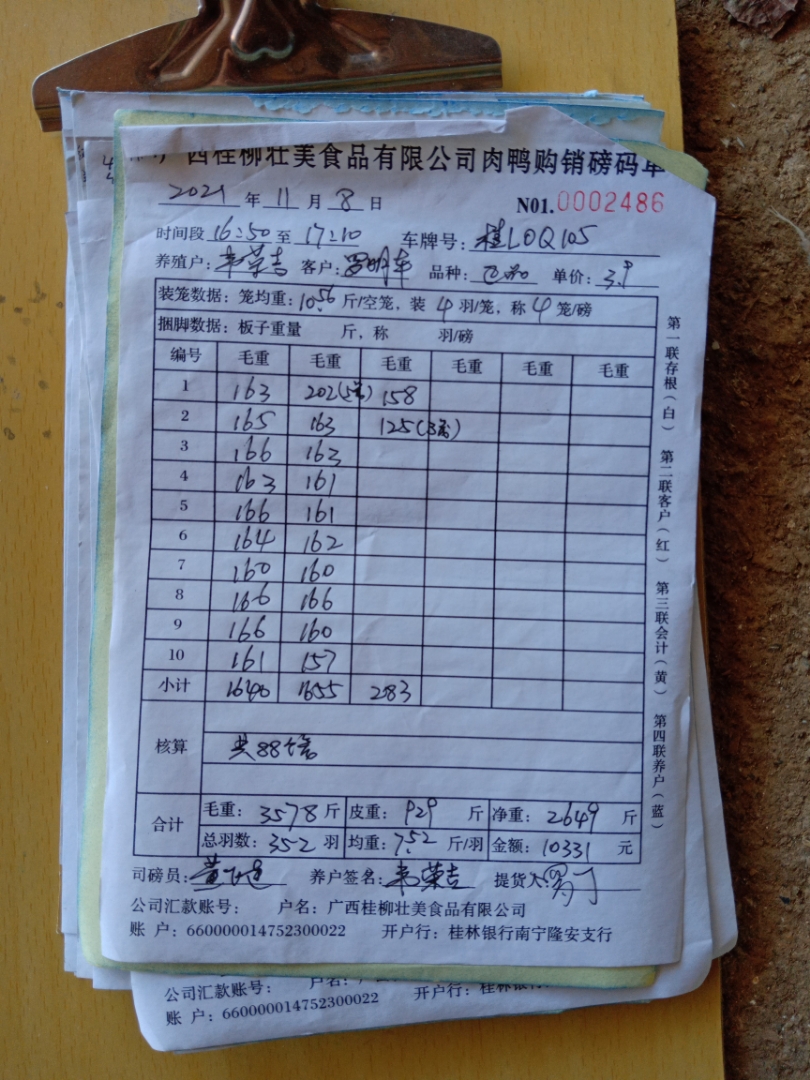 广西桂柳壮美食品有限公司肉鸭购销磅码单
2021 年 11 月 8 日 N01.0002486
时间段 16:50 至 17:10 车牌号: 桂L0Q105
养殖户: 韦荣吉 客户: 罗明车 品种: 单价: 3.9
装笼数据: 笼均重: 10.56 斤/空笼, 装 4 羽/笼, 称 4 笼/磅
捆脚数据: 板子重量 斤, 称 羽/磅
编号 毛重 毛重 毛重 毛重 毛重 毛重
1 163 202(5笼) 158
2 165 163 125(3笼)
3 166 162
4 163 161
5 166 161
6 164 162
7 160 160
8 166 166
9 166 160
10 161 157
小计 1640 1655 283
核算 共88笼
合计 毛重: 3578 斤 皮重: 929 斤 净重: 2649 斤
总羽数: 352 羽 均重: 7.52 斤/羽 金额: 10331 元
司磅员: 黄 养户签名: 韦荣吉 提货人:
公司汇款账号: 户名: 广西桂柳壮美食品有限公司
账 户: 660000014752300022 开户行: 桂林银行南宁隆安支行
第一联存根(白) 第二联客户(红) 第三联会计(黄) 第四联养户(蓝)
公司汇款账号: 户名: 广西
账 户: 660000014752300022 开户行: 桂林银